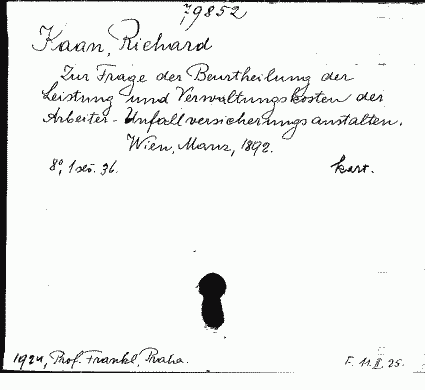 79852
Kaan, Richard
Zur Frage der Beurtheilung der
Leistung und Verwaltungskosten der
Arbeiter-Unfallversicherungsanstalten.
Wien, Manz, 1892.
8°, 1 36. kart.
1924, Prof. Frankl, Praha.
F. 11.II.25.